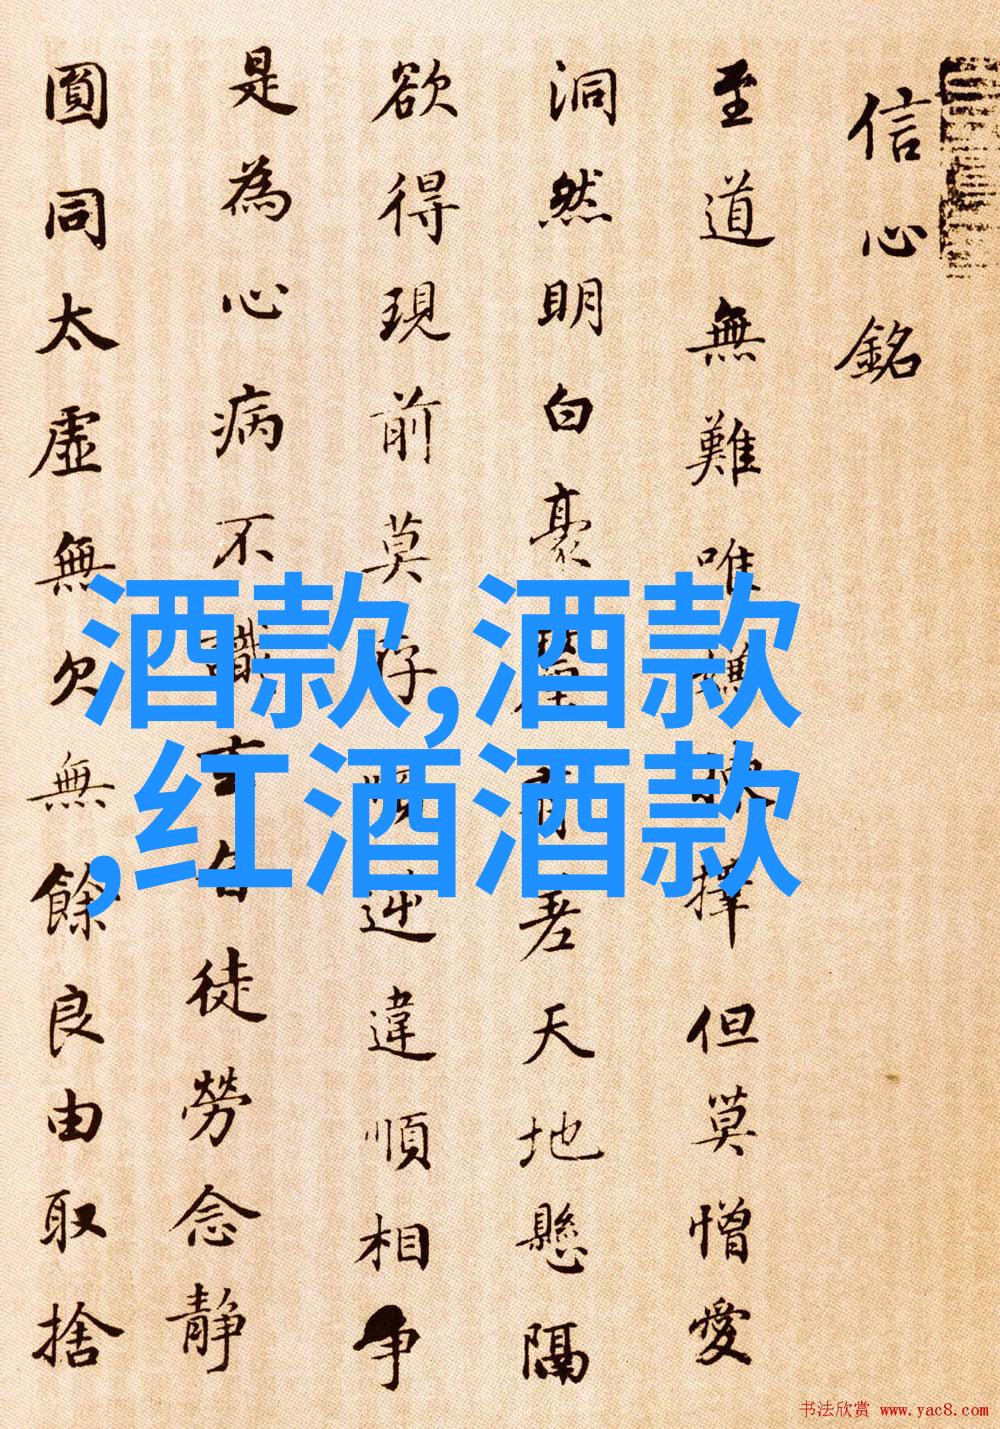 信心銘
至道無難唯嫌揀擇但莫憎愛
洞然明白豪釐有差天地懸隔
欲得現前莫存順逆違順相争
是為心病不識玄旨徒勞念静
圓同太虛無欠無餘良由取捨
酒款,酒款
,红酒酒款
书法欣赏 www.yac8.com